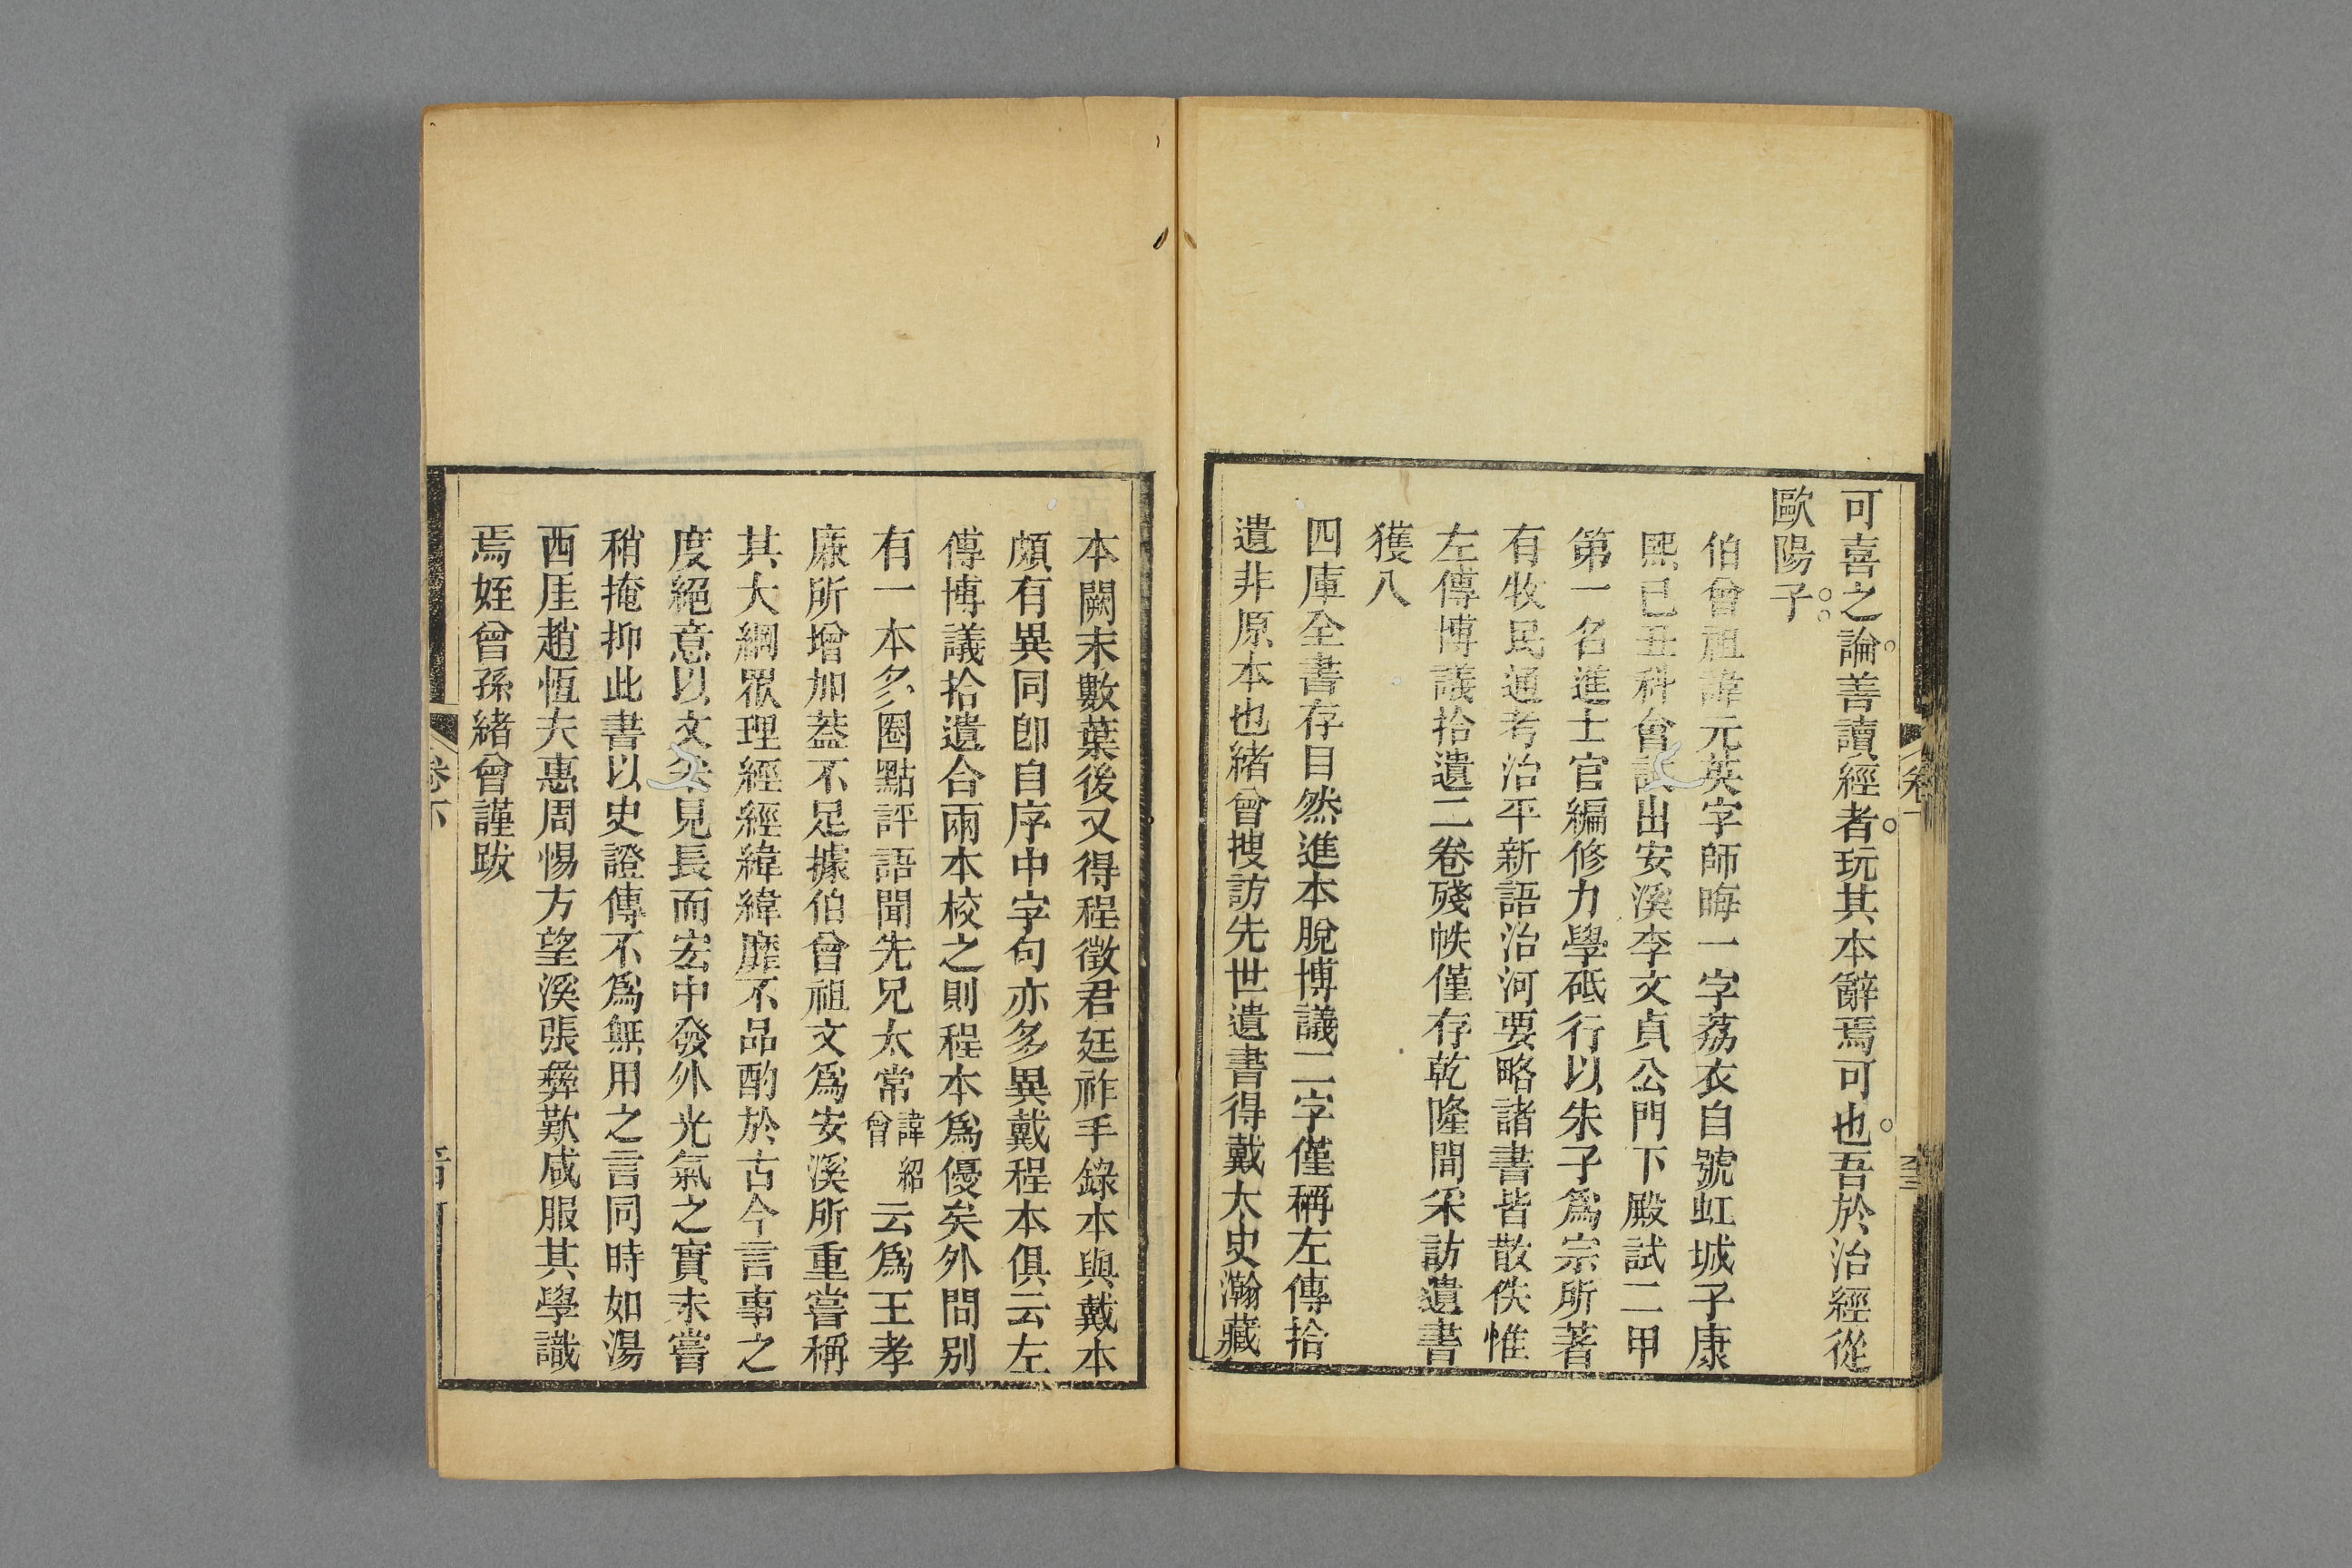 可喜之論善讀經者玩其本辭焉可也吾於治經從
歐陽子
伯曾祖諱元英字師晦一字荔衣自號虹城子康
熙己丑科會試出安溪李文貞公門下殿試二甲
第一名進士官編修力學砥行以朱子爲宗所著
有牧民通考治平新語治河要略諸書皆散佚惟
左傳博議拾遺二卷殘帙僅存乾隆間采訪遺書
獲入
四庫全書存目然進本脫博議二字僅稱左傳拾
遺非原本也緒曾搜訪先世遺書得戴太史瀚藏
本闕末數葉後又得程徵君廷祚手錄本與戴本
頗有異同卽自序中字句亦多異戴程本俱云左
傳博議拾遺合兩本校之則程本爲優矣外間別
有一本多圈點評語聞先兄太常諱紹曾云爲王孝
廉所增加葢不足據伯曾祖文爲安溪所重嘗稱
其大綱眾理經經緯緯靡不品酌於古今言事之
度絕意以文采見長而宏中發外光氣之實未嘗
稍掩抑此書以史證傳不爲無用之言同時如湯
西厓趙恆夫惠周惕方望溪張彝歎咸服其學識
焉姪曾孫緒曾謹跋
卷下